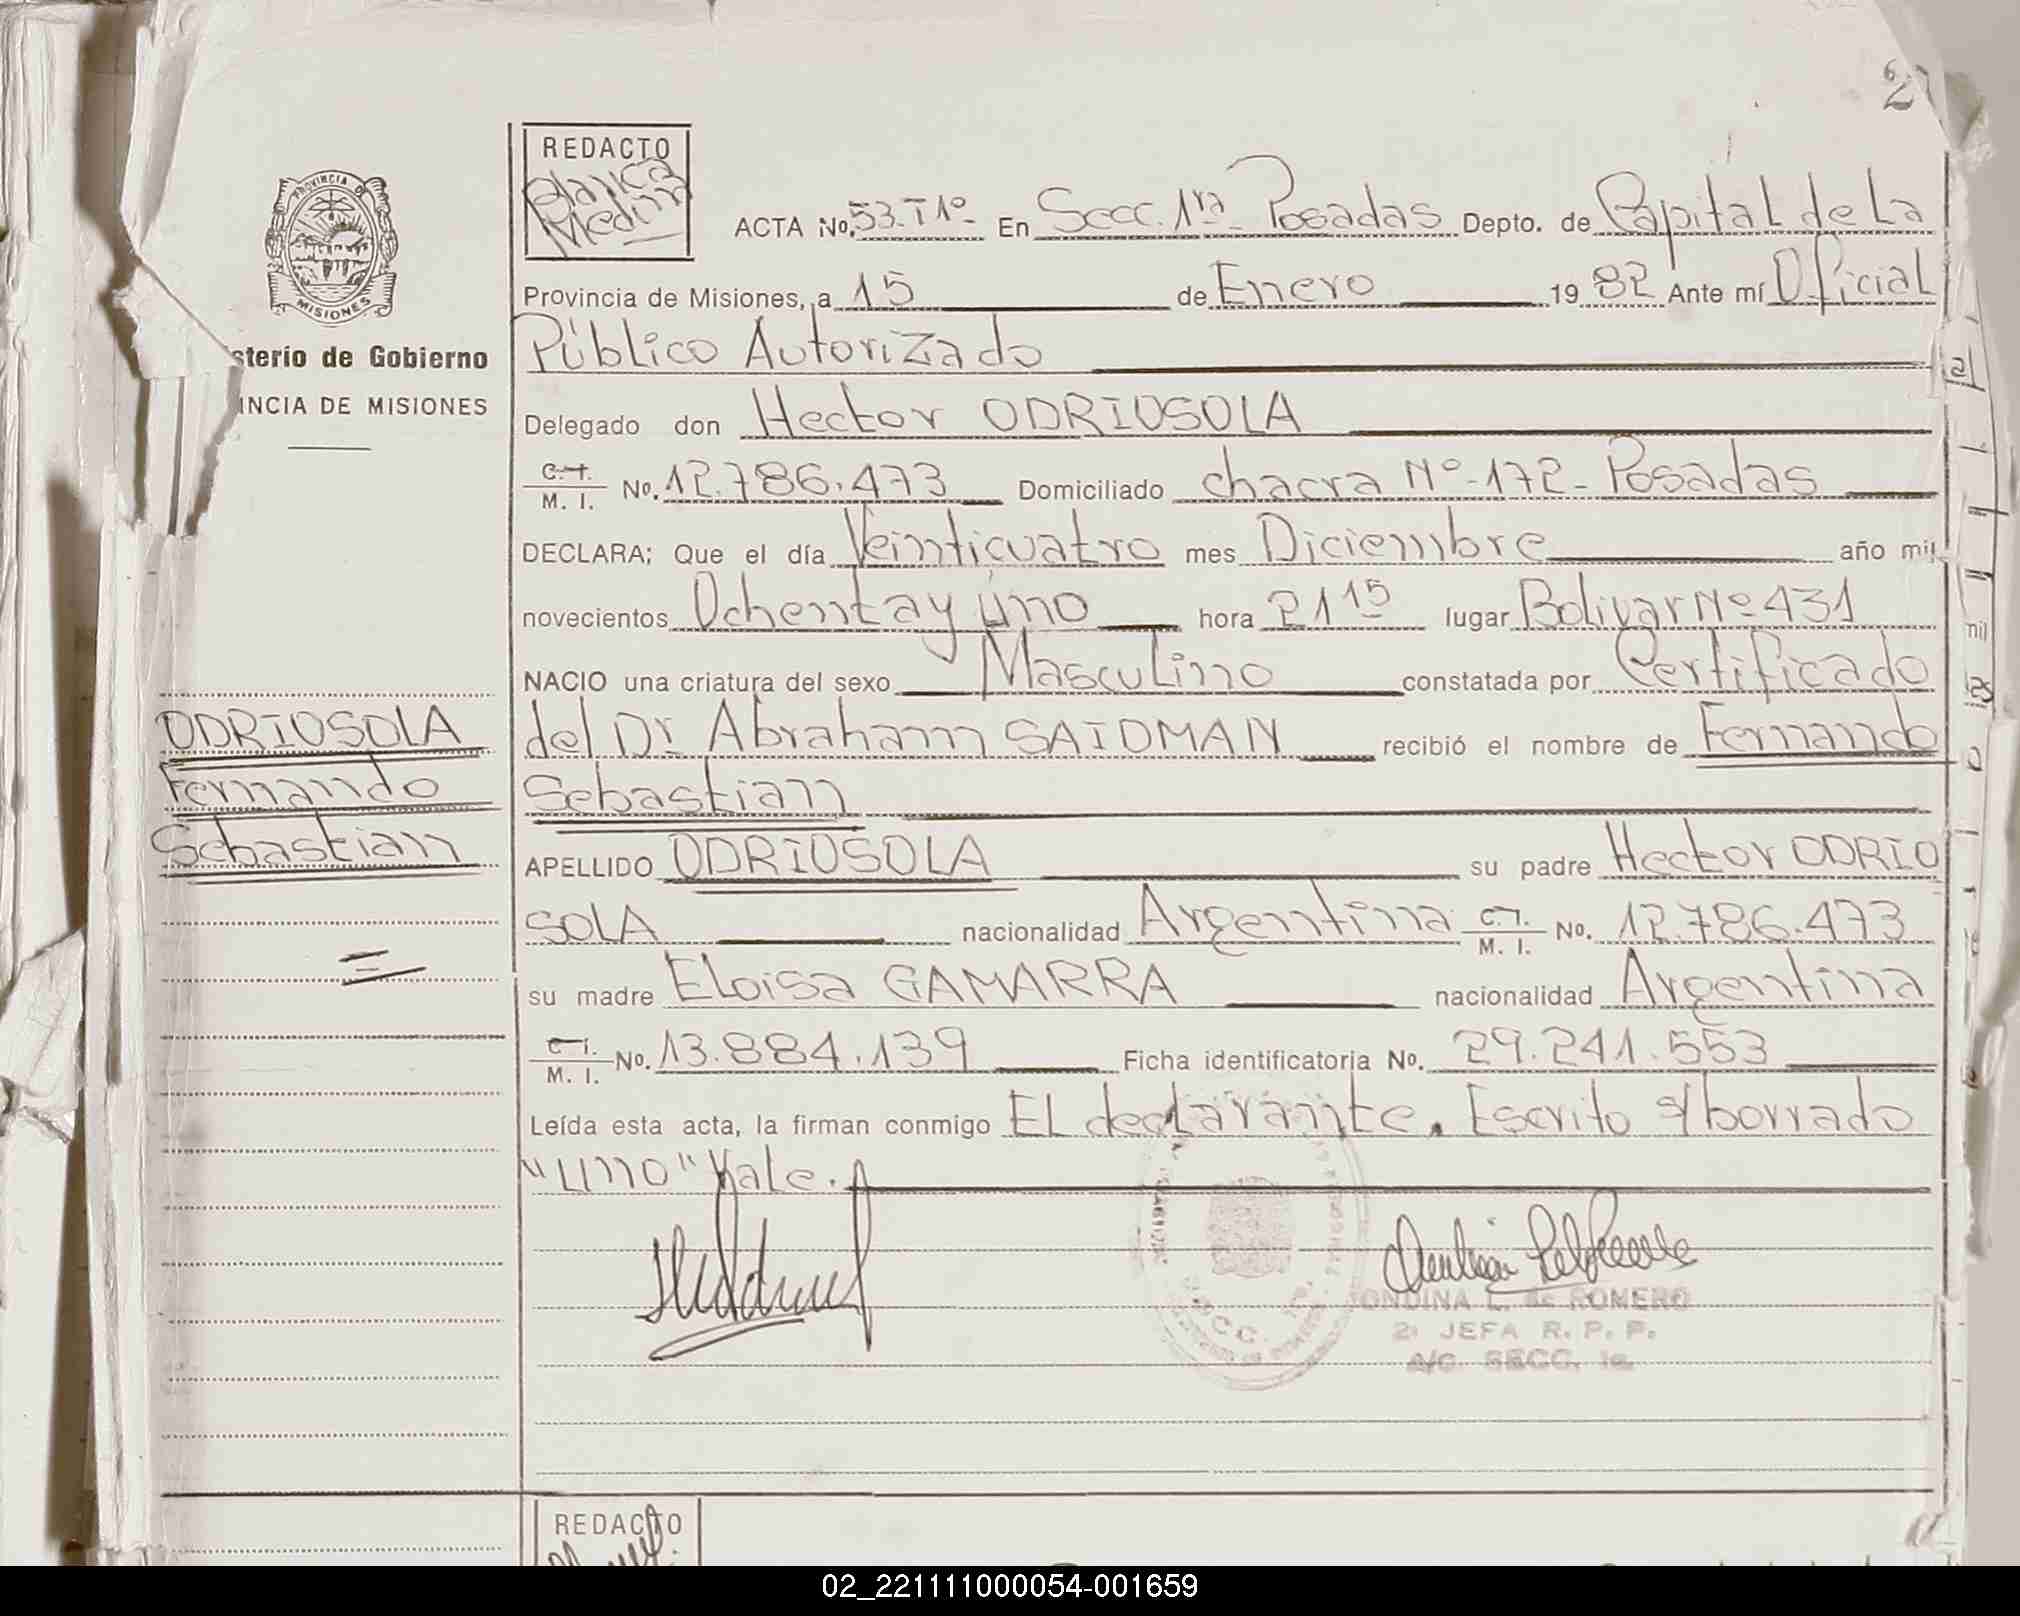 27
REDACTO
Blanca
Medina
ACTA No. 53.T1º En Secc. 1ra Posadas Depto. de Capital de La
Provincia de Misiones, a 15 de Enero 1982 Ante mí Oficial
Público Autorizado
Delegado don Hector ODRIOSOLA
C. I. M. I. No. 12.786.473 Domiciliado chacra Nº-172- Posadas
DECLARA; Que el día Veinticuatro mes Diciembre año mil
novecientos Ochentay uno hora 21 15 lugar Bolivar Nº 431
NACIO una criatura del sexo Masculino constatada por Certificado
del Dr. Abraham SAIDMAN recibió el nombre de Fernando
Sebastian
APELLIDO ODRIOSOLA su padre Hector ODRIO
SOLA nacionalidad Argentina C. I. M. I. No. 12.786.473
su madre Eloisa GAMARRA nacionalidad Argentina
C. I. M. I. No. 13.884.139 Ficha identificatoria No. 29.241.553
Leída esta acta, la firman conmigo El declarante. Escrito s/borrado
"uno" Vale.
ONDINA L. de ROMERO
2ª JEFA R. P. P.
A/C. SECC. 1a.
PROVINCIA DE
MISIONES
sterio de Gobierno
INCIA DE MISIONES
ODRIOSOLA
Fernando
Sebastian
REDACTO
02_221111000054-001659